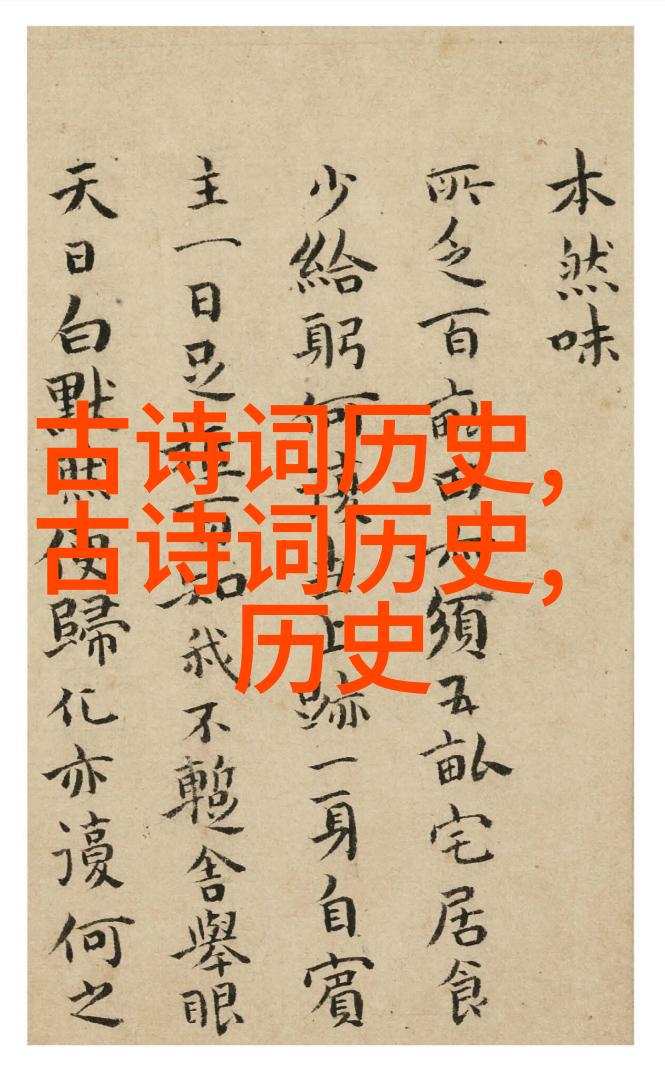 古诗词历史,
古诗词历史,
历史
本然味
所乏百畝田
須五畝宅居食
少給躬何
跡一身自賓
主一日足
知我不暫舍舉眼
天日白默然便歸化亦
何之